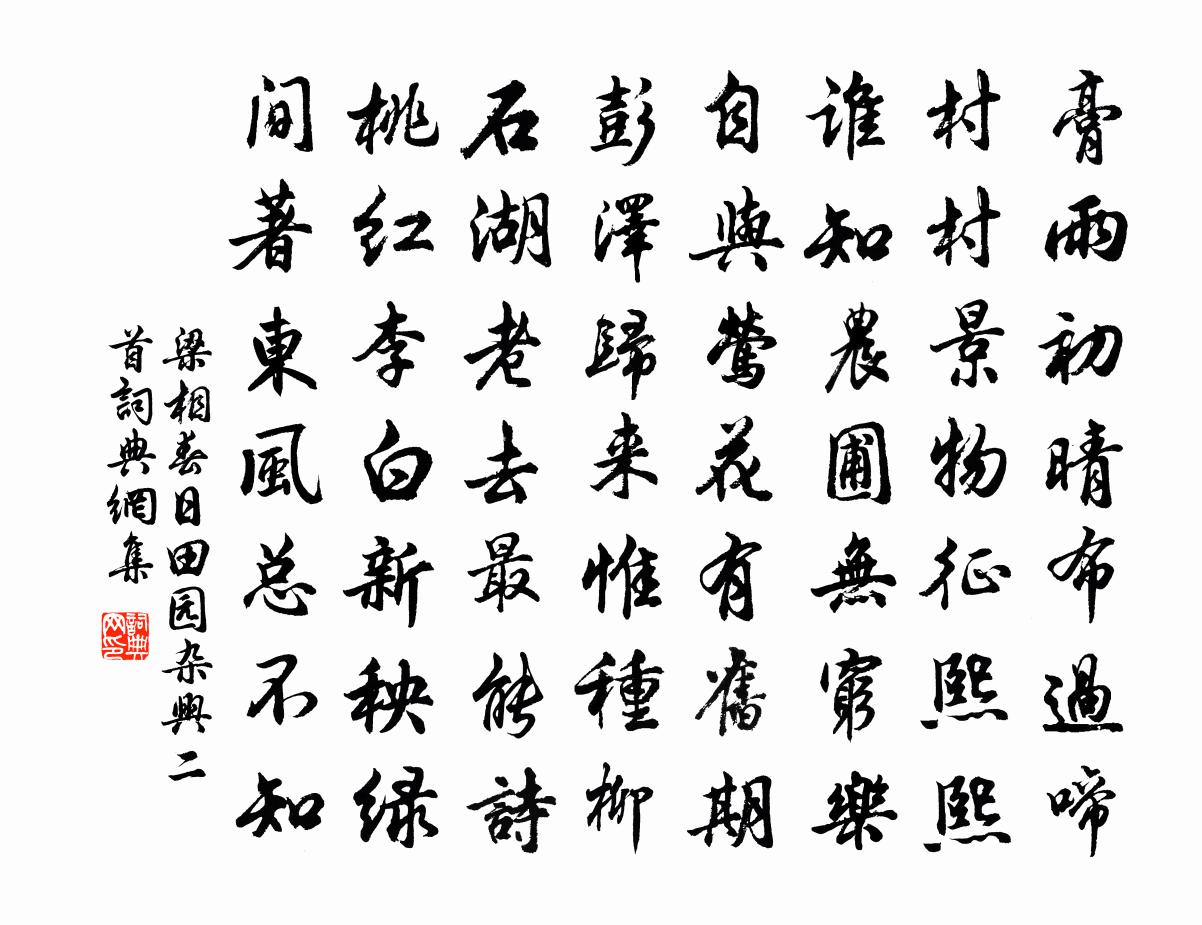 膏雨初晴布過啼
村村景物征熙熙
谁知農圃無窮樂
自與鶯花有舊期
彭澤歸来惟種柳
石湖老去最能詩
桃红李白新秧绿
间著東風总不知
梁相春日田园杂興二
首詞典網集
詞典网印